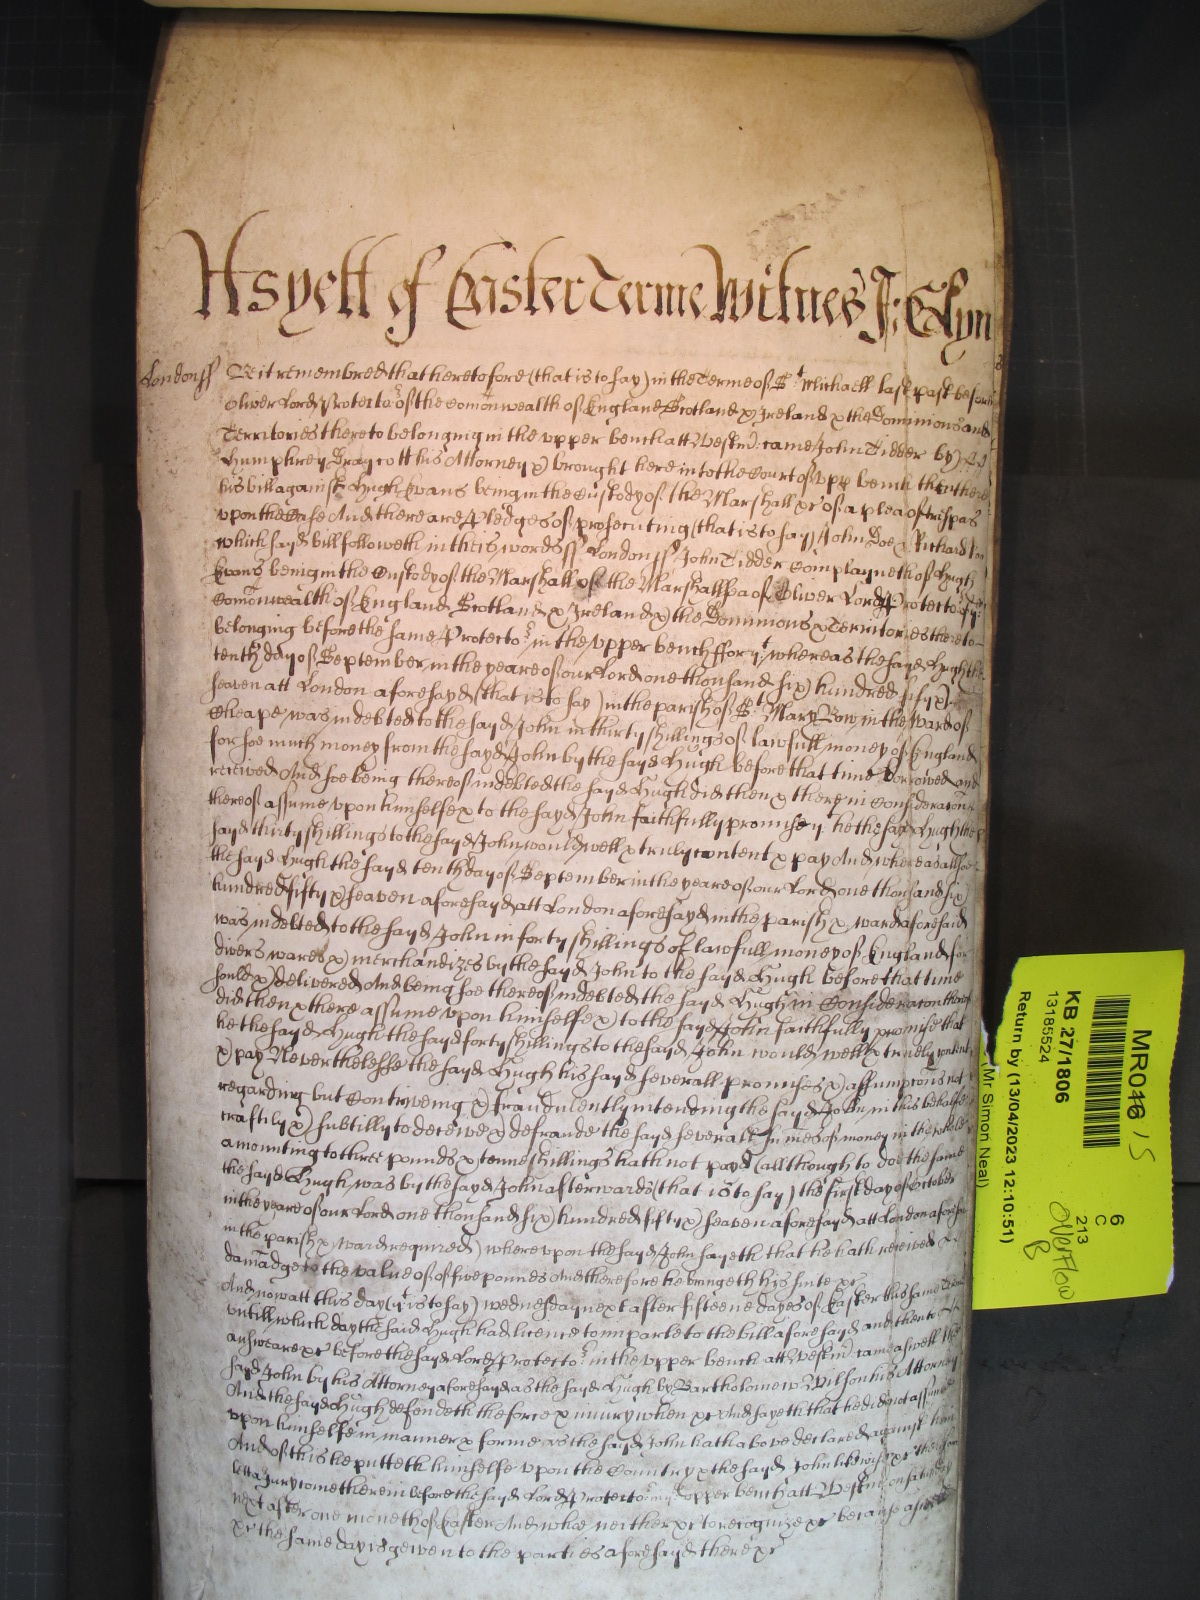 As yett of Easter Terme Witnes J: Glyn
London ss Be it remembred that heretofore (that is to say) in the Terme of St Michaell last past before
Oliver Lord Protector of the Comonwealth of England Scotland & Ireland & the Dominions and
Territories thereto belonging in the upper bench att Westm: came John Tidder by
Humphrey Draycott his Attorney & brought here into the Court of upp bench then there
his bill against Hugh Evans being in the Custody of the Marshall &c of a plea of trespas
upon the Case And there are Pledges of prosecuting (that is to say) John Doe & Richard Roo
which sayd bill followeth in theis words ss London ss John Tidder Complayneth of Hugh
Evans being in the Custody of the Marshall of the Marshallsea of Oliver Lord Protector of the
Comonwealth of England Scotland & Ireland & the Dominions & Territories thereto
belonging before the same Protector in the upper bench ffor yt whereas the sayd Hugh the
tenth day of September in the yeare of our Lord one thousand six hundred fifty &
seaven att London aforesayd (that is to say) in the parish of St Mary Bow in the Ward of
Cheape was indebted to the sayd John in thirty shillings of lawfull money of England
for soe much money from the sayd John by the sayd Hugh before that time borrowed and
received And soe being thereof indebted the sayd Hugh did then & there in Consideracon
thereof assume upon himselfe & to the sayd John faithfully promise yt he the sayd Hugh the
sayd thirty shillings to the sayd John would well & truly content & pay And whereas allsoe
the sayd Hugh the sayd tenth day of September in the yeare of our Lord one thousand six
hundred fifty & seaven aforesayd att London aforesayd in the parish & ward aforesaid
was indebted to the sayd John in forty shillings of lawfull money of England for
divers wares & merchandizes by the sayd John to the sayd Hugh before that time
sould & delivered And being soe thereof indebted the sayd Hugh in Consideracon thereof
did then & there assume upon himselfe & to the sayd John faithfully promise that
he the sayd Hugh the sayd forty shillings to the sayd John would well & truely content
& pay Neverthelesse the sayd Hugh his sayd severall promises & assumpcons not
regarding but Contriveing & fraudulently intending the sayd John in this behalfe
craftily & subtilly to deceive & defraude the sayd severall sumes of money in the whole
amounting to three pounds & tenne shillings hath not payd (allthough to doe the same
the sayd Hugh was by the sayd John afterwards (that is to say) the first day of October
in the yeare of our Lord one thousand six hundred fifty & seaven aforesayd att London aforesayd
in the parish & ward required) whereupon the sayd John sayeth that he hath received
damadge to the value of of five pounes And therefore he bringeth his suite &c
And now att this day (yt is to say) wednesday next after fifteene dayes of Easter this same Terme
untill which day the said Hugh had licence to imparle to the bill aforesayd and then to
answeare &c before the sayd Lord Protector in the upper bench att Westm: came aswell the
sayd John by his Attorney aforesayd as the sayd Hugh by Bartholomew Wilson his Attorney
And the sayd Hugh defendeth the force & injury when &c And sayeth that he did not assume
upon himselfe in manner & forme as the sayd John hath above declared against him
And of this he putteth himselfe upon the Country & the sayd John likewise &c Therefore
lett a Jury come therein before the sayd Lord Protector in ye upper bench att Westm: on saturday
next after one moneth of Easter And who neither &c to recognize &c because aswell
&c the same day is given to the parties aforesayd there &c
MR046 15
KB 27/1806
13185524
Return by (13/04/2023 12:10:51)
(Mr Simon Neal)
6
C
213
OVERFLOW
B